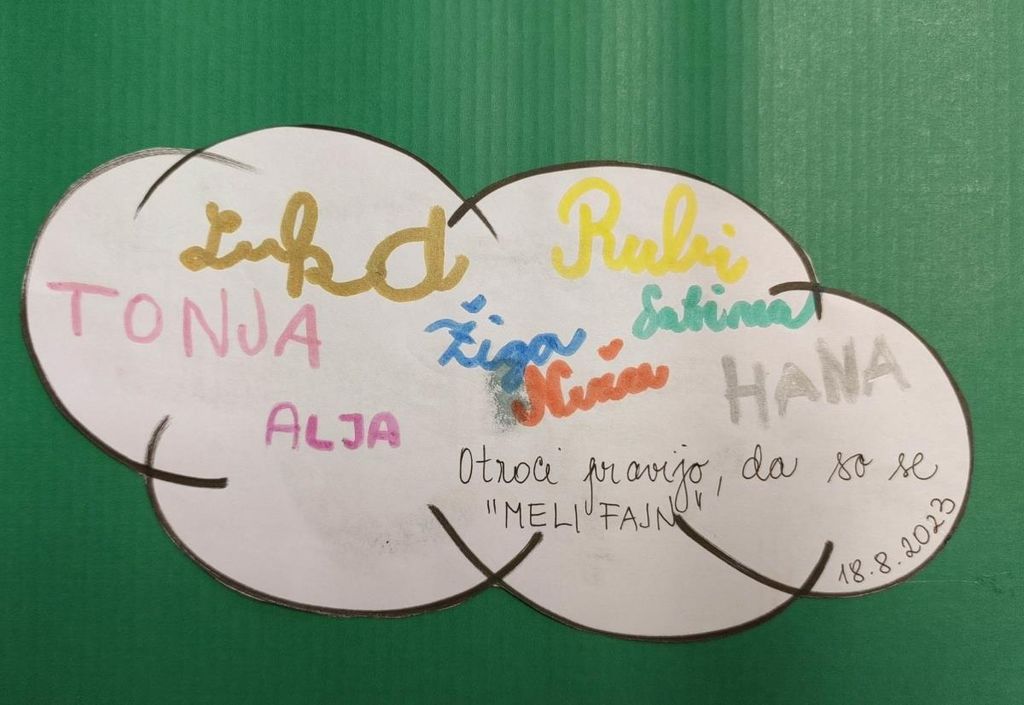 Luka
Rubi
TONJA
Žiga
Sabina
HANA
ALJA
Otroci pravijo, da so se
"MELI FAJN"
18.8.2023